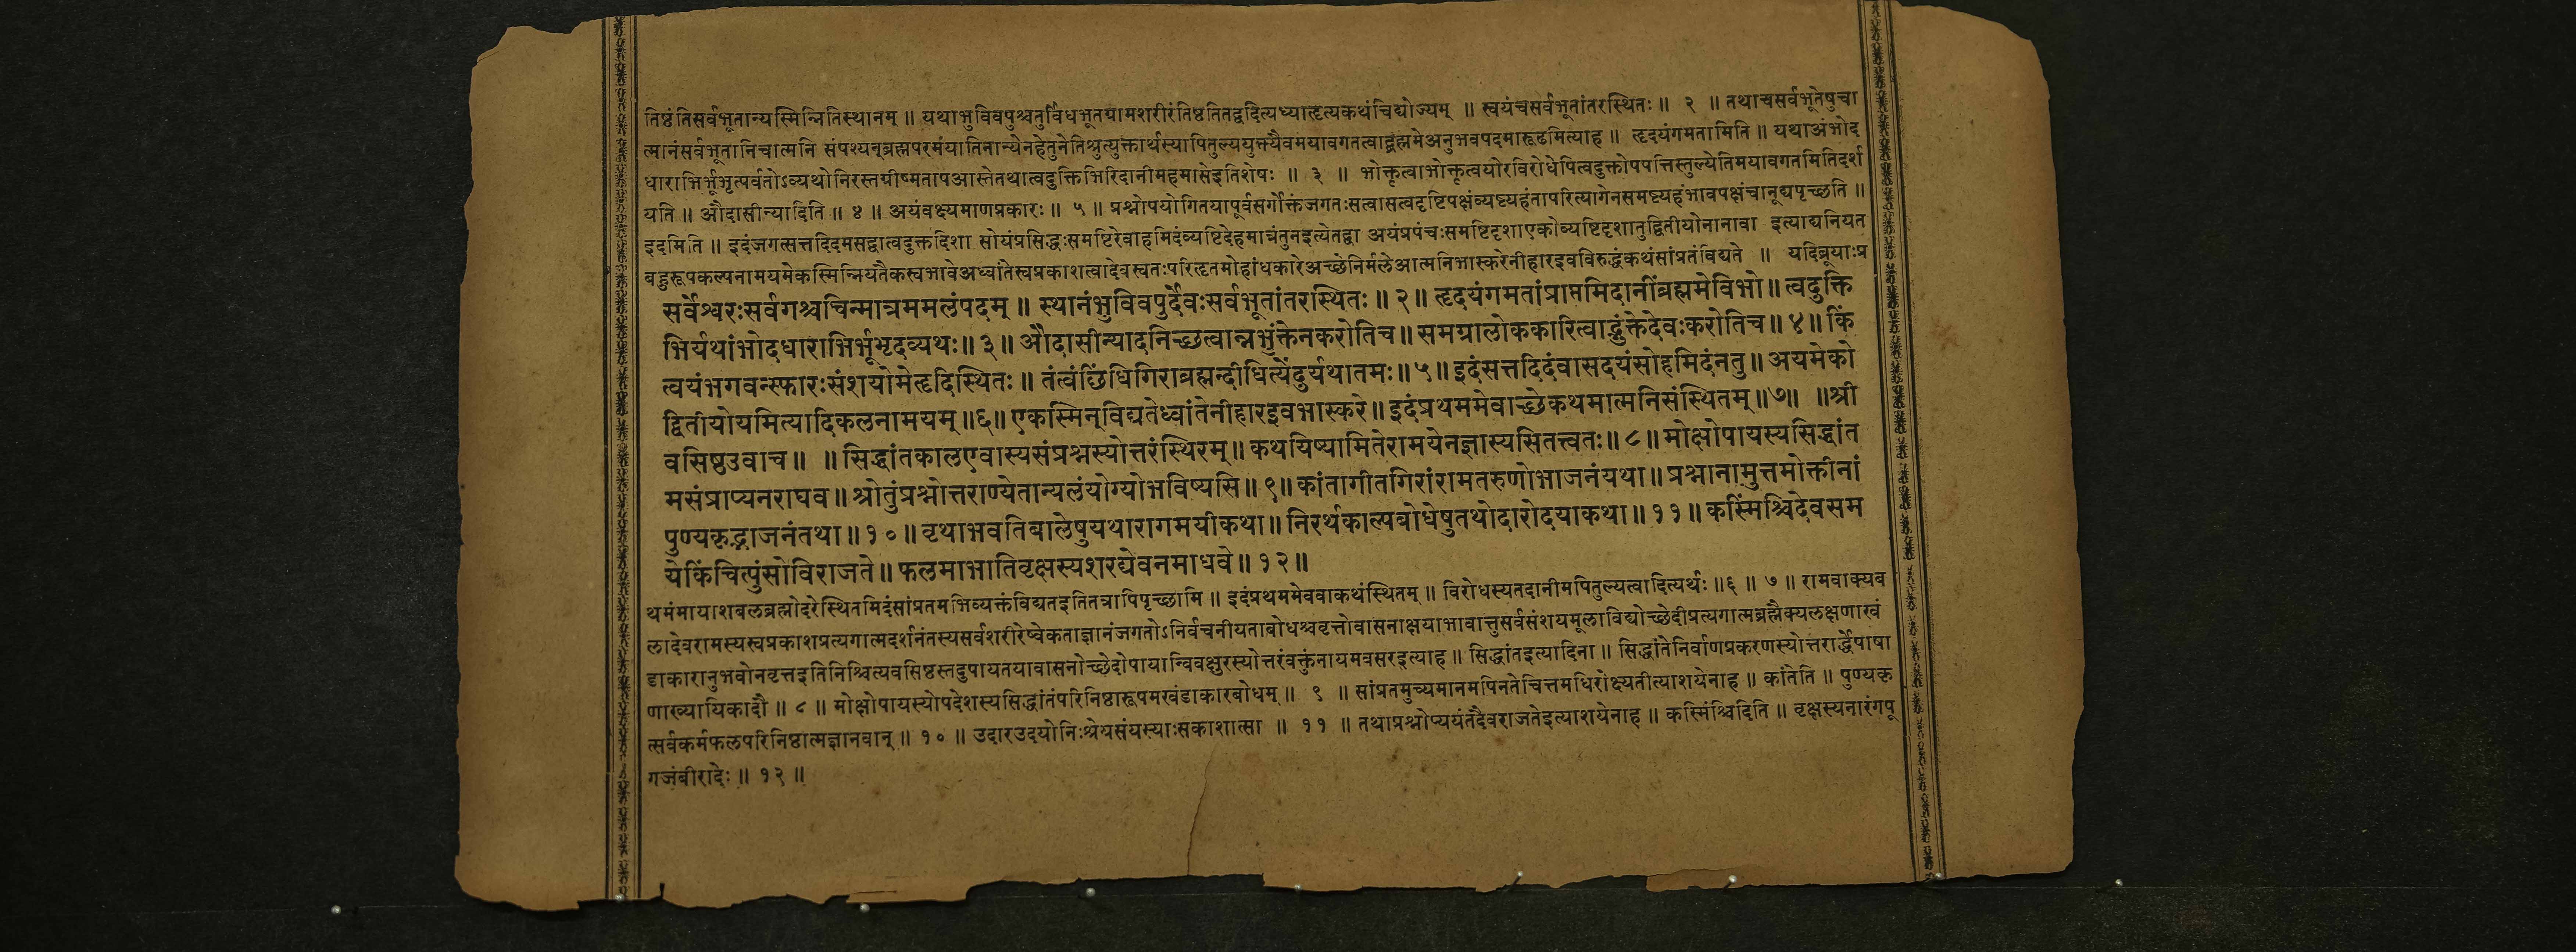 तिष्ठंतिसर्वभूतान्यस्मिन्नितिस्थानम् ॥ यथाभुविवपुश्चतुर्विधभूतग्रामशरीरंतिष्ठतितद्वदित्यध्याहृत्यकथंचिद्योज्यम् ॥ स्वयंचसर्वभूतांतरस्थितः ॥ २ ॥ तथाचसर्वभूतेषुचा
त्मानंसर्वभूतानिचात्मनि संपश्यन्ब्रह्मपरमंयातिनान्येनहेतुनेतिश्रुत्युक्तार्थस्यापितुल्ययुक्त्यैवमयावगतत्वाद्ब्रह्ममेअनुभवपदमारूढमित्याह ॥ हृदयंगमतामिति ॥ यथाअंभोद
धाराभिर्भूभृत्पर्वतोऽव्यथोनिरस्तग्रीष्मतापआस्तेतथात्वदुक्तिभिरिदानीमहमासेइतिशेषः ॥ ३ ॥ भोक्तृत्वाभोक्तृत्वयोरविरोधेपित्वदुक्तोपपत्तिस्तुल्येतिमयावगतमितिदर्श
यति ॥ औदासीन्यादिति ॥ ४ ॥ अयंवक्ष्यमाणप्रकारः ॥ ५ ॥ प्रश्नोपयोगितयापूर्वसर्गोक्तंजगतःसत्वासत्वदृष्टिपक्षंव्यष्ट्यहंतापरित्यागेनसमष्ट्यहंभावपक्षंचानूद्यपृच्छति ॥
इदमिति ॥ इदंजगत्सत्तदिदमसद्वात्वदुक्तदिशा सोयंप्रसिद्धःसमष्टिरेवाहमिदंव्यष्टिदेहमात्रंतुनइत्येतद्वा अयंप्रपंचःसमष्टिदृशाएकोव्यष्टिदृशातुद्वितीयोनानावा इत्याद्यनियत
बहुरूपकल्पनामयमेकस्मिन्नियतैकस्वभावेअध्वांतेस्वप्रकाशत्वादेवस्वतःपरिहृतमोहांधकारेअच्छेनिर्मलेआत्मनिभास्करेनीहारइवविरुद्धंकथंसांप्रतंविद्यते ॥ यदिब्रूयाःप्र
सर्वेश्वरःसर्वगश्चचिन्मात्रममलंपदम् ॥ स्थानंभुविवपुर्देवःसर्वभूतांतरस्थितः ॥ २ ॥ हृदयंगमतांप्राप्तमिदानींब्रह्ममेविभो ॥ त्वदुक्ति
भिर्यथांभोदधाराभिर्भूभृदव्यथः ॥ ३ ॥ औदासीन्यादनिच्छत्वान्नभुंक्तेनकरोतिच ॥ समग्रालोककारित्वाद्भुंक्तेदेवःकरोतिच ॥ ४ ॥ किं
त्वयंभगवन्स्फारःसंशयोमेहृदिस्थितः ॥ तंत्वंछिंधिगिराब्रह्मन्दीधित्येंदुर्यथातमः ॥ ५ ॥ इदंसत्तदिदंवासदयंसोहमिदंनतु ॥ अयमेको
द्वितीयोयमित्यादिकलनामयम् ॥ ६ ॥ एकस्मिन्विद्यतेध्वांतेनीहारइवभास्करे ॥ इदंप्रथममेवाच्छेकथमात्मनिसंस्थितम् ॥ ७ ॥ ॥ श्री
वसिष्ठउवाच ॥ ॥ सिद्धांतकालएवास्यसंप्रश्नस्योत्तरंस्थिरम् ॥ कथयिष्यामितेरामयेनज्ञास्यसितत्त्वतः ॥ ८ ॥ मोक्षोपायस्यसिद्धांत
मसंप्राप्यनराघव ॥ श्रोतुंप्रश्नोत्तराण्येतान्यलंयोग्योभविष्यसि ॥ ९ ॥ कांतागीतगिरांरामतरुणोभाजनंयथा ॥ प्रश्नानामुत्तमोक्तीनां
पुण्यकृद्भाजनंतथा ॥ १० ॥ वृथाभवतिबालेषुयथारागमयीकथा ॥ निरर्थकाल्पबोधेषुतथोदारोदयाकथा ॥ ११ ॥ कस्मिंश्चिदेवसम
येकिंचित्पुंसोविराजते ॥ फलमाभातिवृक्षस्यशरद्येवनमाधवे ॥ १२ ॥
थमंमायाशबलब्रह्मोदरेस्थितमिदंसांप्रतमभिव्यक्तंविद्यतइतितत्रापिपृच्छामि ॥ इदंप्रथममेववाकथंस्थितम् ॥ विरोधस्यतदानीमपितुल्यत्वादित्यर्थः ॥ ६ ॥ ७ ॥ रामवाक्यब
लादेवरामस्यस्वप्रकाशप्रत्यगात्मदर्शनंतस्यसर्वशरीरेष्वेकताज्ञानंजगतोऽनिर्वचनीयताबोधश्चवृत्तोवासनाक्षयाभावात्तुसर्वसंशयमूलाविद्योच्छेदीप्रत्यगात्मब्रह्मैक्यलक्षणाखं
डाकारानुभवोनवृत्तइतिनिश्चित्यवसिष्ठस्तदुपायतयावासनोच्छेदोपायान्विवक्षुरस्योत्तरंवक्तुंनायमवसरइत्याह ॥ सिद्धांतइत्यादिना ॥ सिद्धांतेनिर्वाणप्रकरणस्योत्तरार्द्धेपाषा
णाख्यायिकादौ ॥ ८ ॥ मोक्षोपायस्योपदेशस्यसिद्धांतंपरिनिष्ठारूपमखंडाकारबोधम् ॥ ९ ॥ सांप्रतमुच्यमानमपिनतेचित्तमधिरोक्ष्यतीत्याशयेनाह ॥ कांतेति ॥ पुण्यकृ
त्सर्वकर्मफलपरिनिष्ठात्मज्ञानवान् ॥ १० ॥ उदारउदयोनिःश्रेयसंयस्याःसकाशात्सा ॥ ११ ॥ तथाप्रश्नोप्ययंतदैवराजतेइत्याशयेनाह ॥ कस्मिंश्चिदिति ॥ वृक्षस्यनारंगपू
गजंबीरादेः ॥ १२ ॥